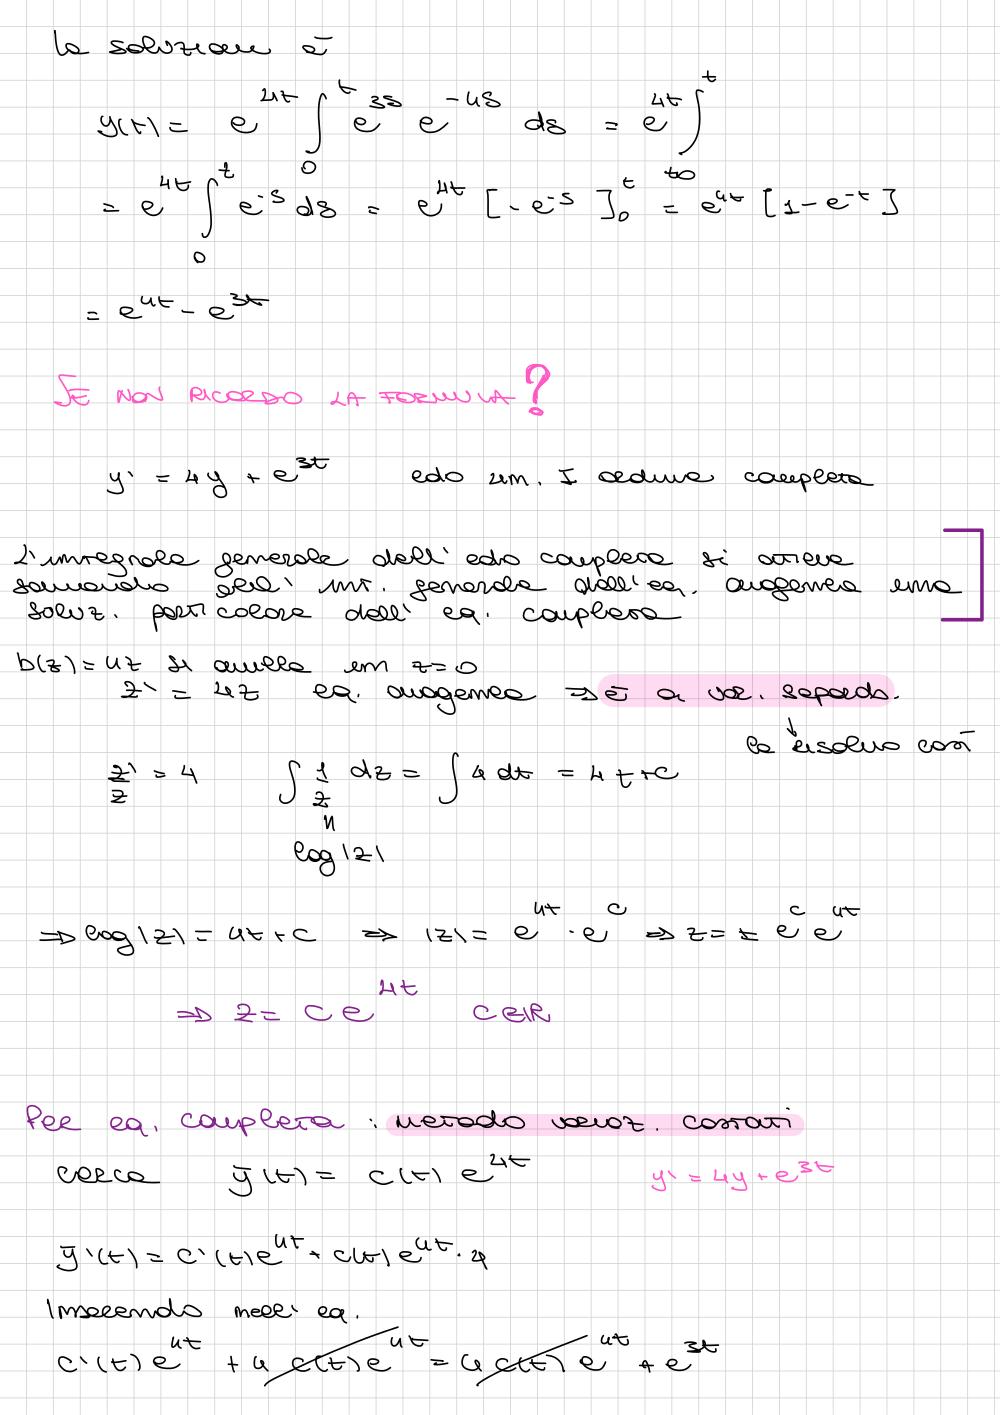 la soluzione è
y(t) = e^{4t} ∫_0^t e^{3s} e^{-4s} ds = e^{4t} ∫_{t0}^t
= e^{4t} ∫_0^t e^{-s} ds = e^{4t} [-e^{-s}]_0^t = e^{4t} [1 - e^{-t}]
= e^{4t} - e^{3t}
SE NON RICORDO LA FORMULA?
y' = 4y + e^{3t} edo lin. I ordine completa
L'integrale generale dell'edo completa si ottiene
sommando all' int. generale dell'eq. omogenea una
soluz. particolare dell' eq. completa
b(z) = 4z si annulla in z=0
z' = 4z eq. omogenea ⇒ è a var. separab.
↓
la risolvo così
z'/z = 4 ∫ 1/z dz = ∫ 4 dt = 4t+c
"
log|z|
⇒ log|z| = 4t+c ⇒ |z| = e^{4t} · e^c ⇒ z = ± e^c e^{4t}
⇒ z = c e^{4t} c∈ℝ
Per eq. completa : metodo variaz. costanti
cerco ȳ(t) = c(t) e^{4t} y' = 4y + e^{3t}
ȳ'(t) = c'(t) e^{4t} + c(t) e^{4t} · 4
Inserendo nell' eq.
c'(t) e^{4t} + 4 c(t) e^{4t} = 4 c(t) e^{4t} + e^{3t}